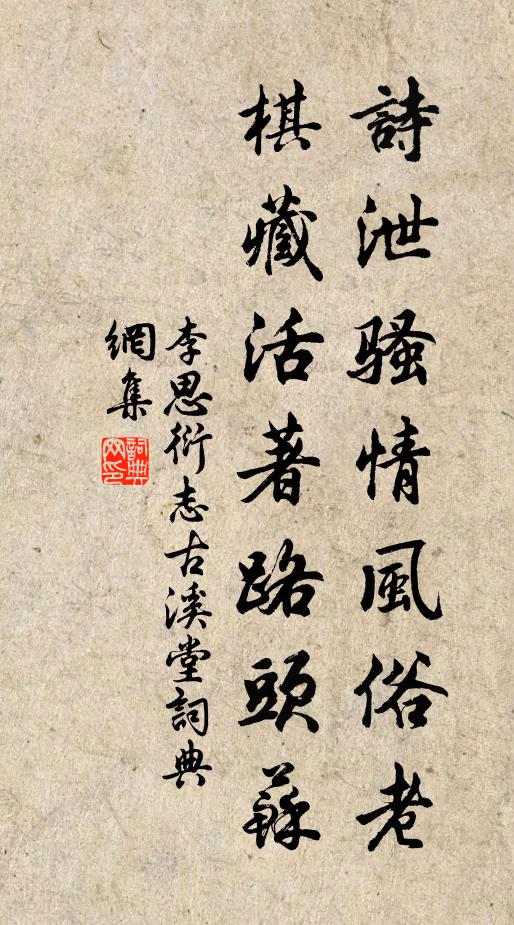 詩泄騷情風俗老
棋藏活著路頭蘇
李思衍志古溪堂詞典
網集
詞典
网印